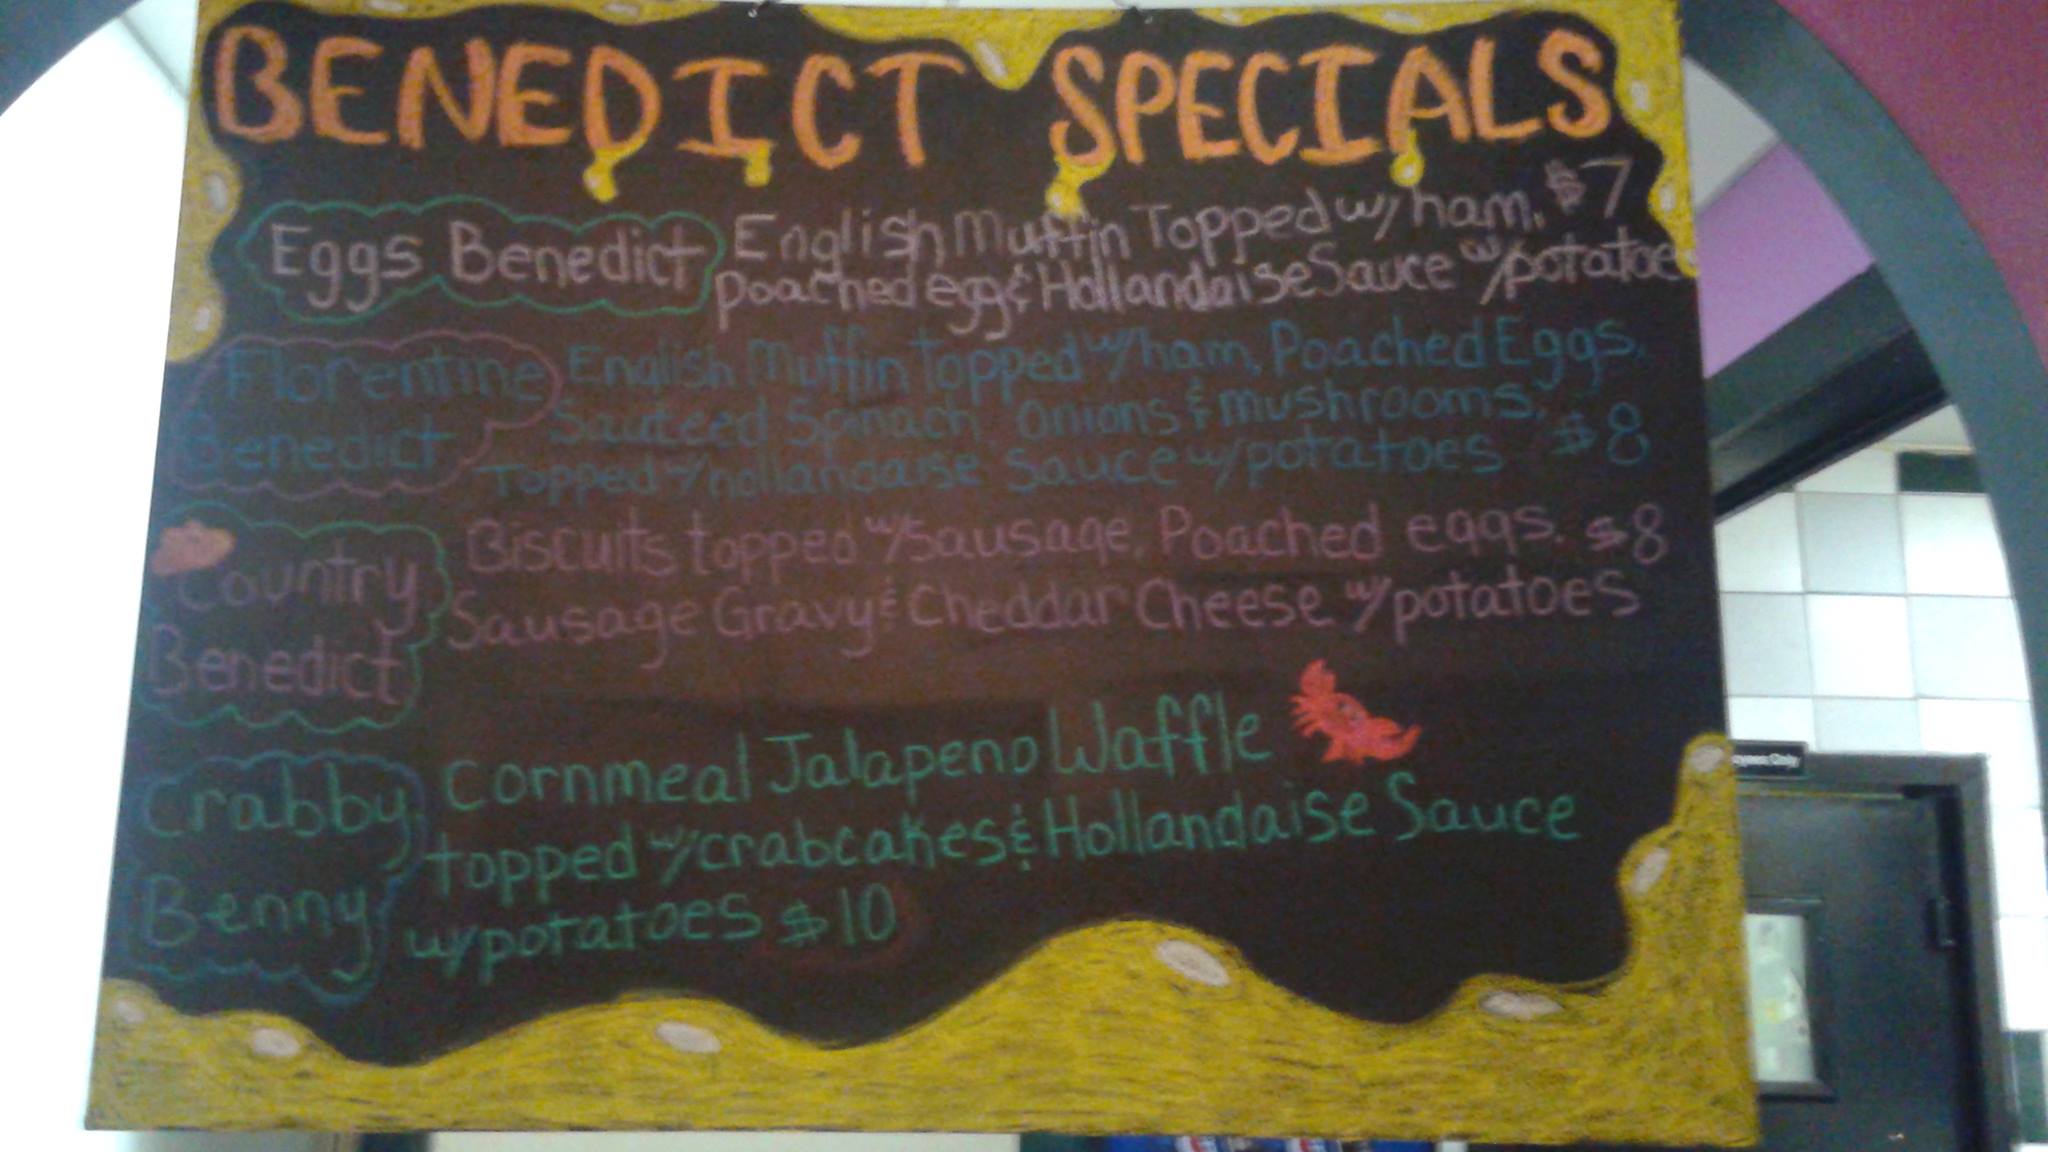 BENEDICT SPECIALS
Eggs Benedict
English Muffin Topped w/ ham, $7
poached egg & Hollandaise Sauce w/potatoe
Florentine
Benedict
English Muffin topped w/ham, Poached Eggs,
Sauteed Spinach, onions & mushrooms,
Topped w/hollandaise Sauce w/potatoes $8
Country
Benedict
Biscuits topped w/sausage, Poached eggs, $8
Sausage Gravy & Cheddar Cheese w/potatoes
Crabby
Benny
Cornmeal Jalapeno Waffle
topped w/crabcakes & Hollandaise Sauce
w/potatoes $10
Only